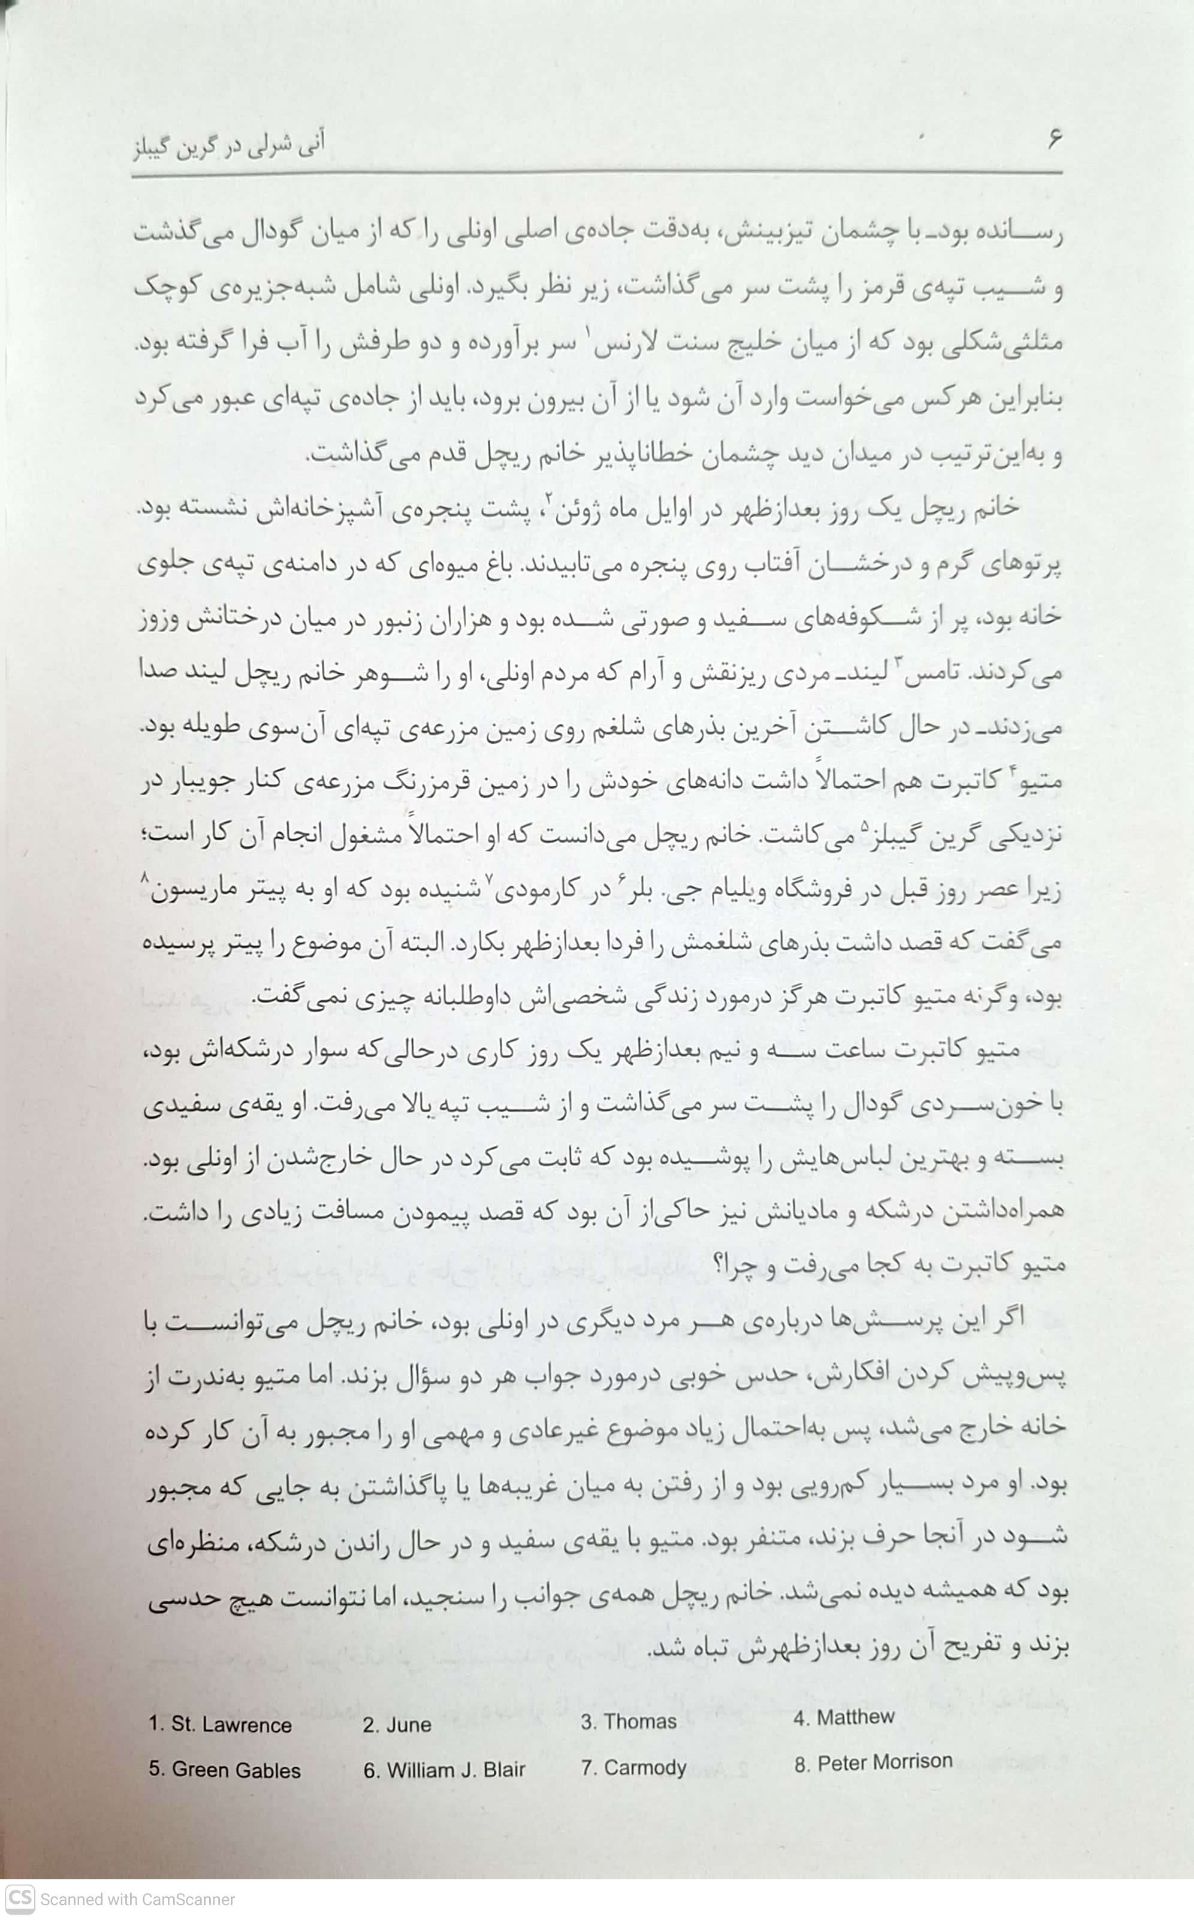 ۶
آنی شرلی در گرین گیبلز
رسانده بود ـ با چشمان تیزبینش، به‌دقت جاده‌ی اصلی اونلی را که از میان گودال می‌گذشت
و شیب تپه‌ی قرمز را پشت سر می‌گذاشت، زیر نظر بگیرد. اونلی شامل شبه‌جزیره‌ی کوچک
مثلثی‌شکلی بود که از میان خلیج سنت لارنس۱ سر برآورده و دو طرفش را آب فرا گرفته بود.
بنابراین هرکس می‌خواست وارد آن شود یا از آن بیرون برود، باید از جاده‌ی تپه‌ای عبور می‌کرد
و به‌این‌ترتیب در میدان دید چشمان خطاناپذیر خانم ریچل قدم می‌گذاشت.
خانم ریچل یک روز بعدازظهر در اوایل ماه ژوئن۲، پشت پنجره‌ی آشپزخانه‌اش نشسته بود.
پرتوهای گرم و درخشان آفتاب روی پنجره می‌تابیدند. باغ میوه‌ای که در دامنه‌ی تپه‌ی جلوی
خانه بود، پر از شکوفه‌های سفید و صورتی شده بود و هزاران زنبور در میان درختانش وزوز
می‌کردند. تامس۳ لیند ـ مردی ریزنقش و آرام که مردم اونلی، او را شوهر خانم ریچل لیند صدا
می‌زدند ـ در حال کاشتن آخرین بذرهای شلغم روی زمین مزرعه‌ی تپه‌ای آن‌سوی طویله بود.
متیو۴ کاتبرت هم احتمالاً داشت دانه‌های خودش را در زمین قرمزرنگ مزرعه‌ی کنار جویبار در
نزدیکی گرین گیبلز۵ می‌کاشت. خانم ریچل می‌دانست که او احتمالاً مشغول انجام آن کار است؛
زیرا عصر روز قبل در فروشگاه ویلیام جی. بلر۶ در کارمودی۷ شنیده بود که او به پیتر ماریسون۸
می‌گفت که قصد داشت بذرهای شلغمش را فردا بعدازظهر بکارد. البته آن موضوع را پیتر پرسیده
بود، وگرنه متیو کاتبرت هرگز درمورد زندگی شخصی‌اش داوطلبانه چیزی نمی‌گفت.
متیو کاتبرت ساعت سه و نیم بعدازظهر یک روز کاری درحالی‌که سوار درشکه‌اش بود،
با خون‌سردی گودال را پشت سر می‌گذاشت و از شیب تپه بالا می‌رفت. او یقه‌ی سفیدی
بسته و بهترین لباس‌هایش را پوشیده بود که ثابت می‌کرد در حال خارج‌شدن از اونلی بود.
همراه‌داشتن درشکه و مادیانش نیز حاکی‌از آن بود که قصد پیمودن مسافت زیادی را داشت.
متیو کاتبرت به کجا می‌رفت و چرا؟
اگر این پرسش‌ها درباره‌ی هر مرد دیگری در اونلی بود، خانم ریچل می‌توانست با
پس‌وپیش کردن افکارش، حدس خوبی درمورد جواب هر دو سؤال بزند. اما متیو به‌ندرت از
خانه خارج می‌شد، پس به‌احتمال زیاد موضوع غیرعادی و مهمی او را مجبور به آن کار کرده
بود. او مرد بسیار کم‌رویی بود و از رفتن به میان غریبه‌ها یا پاگذاشتن به جایی که مجبور
شود در آنجا حرف بزند، متنفر بود. متیو با یقه‌ی سفید و در حال راندن درشکه، منظره‌ای
بود که همیشه دیده نمی‌شد. خانم ریچل همه‌ی جوانب را سنجید، اما نتوانست هیچ حدسی
بزند و تفریح آن روز بعدازظهرش تباه شد.
1. St. Lawrence 2. June 3. Thomas 4. Matthew
5. Green Gables 6. William J. Blair 7. Carmody 8. Peter Morrison
CS Scanned with CamScanner